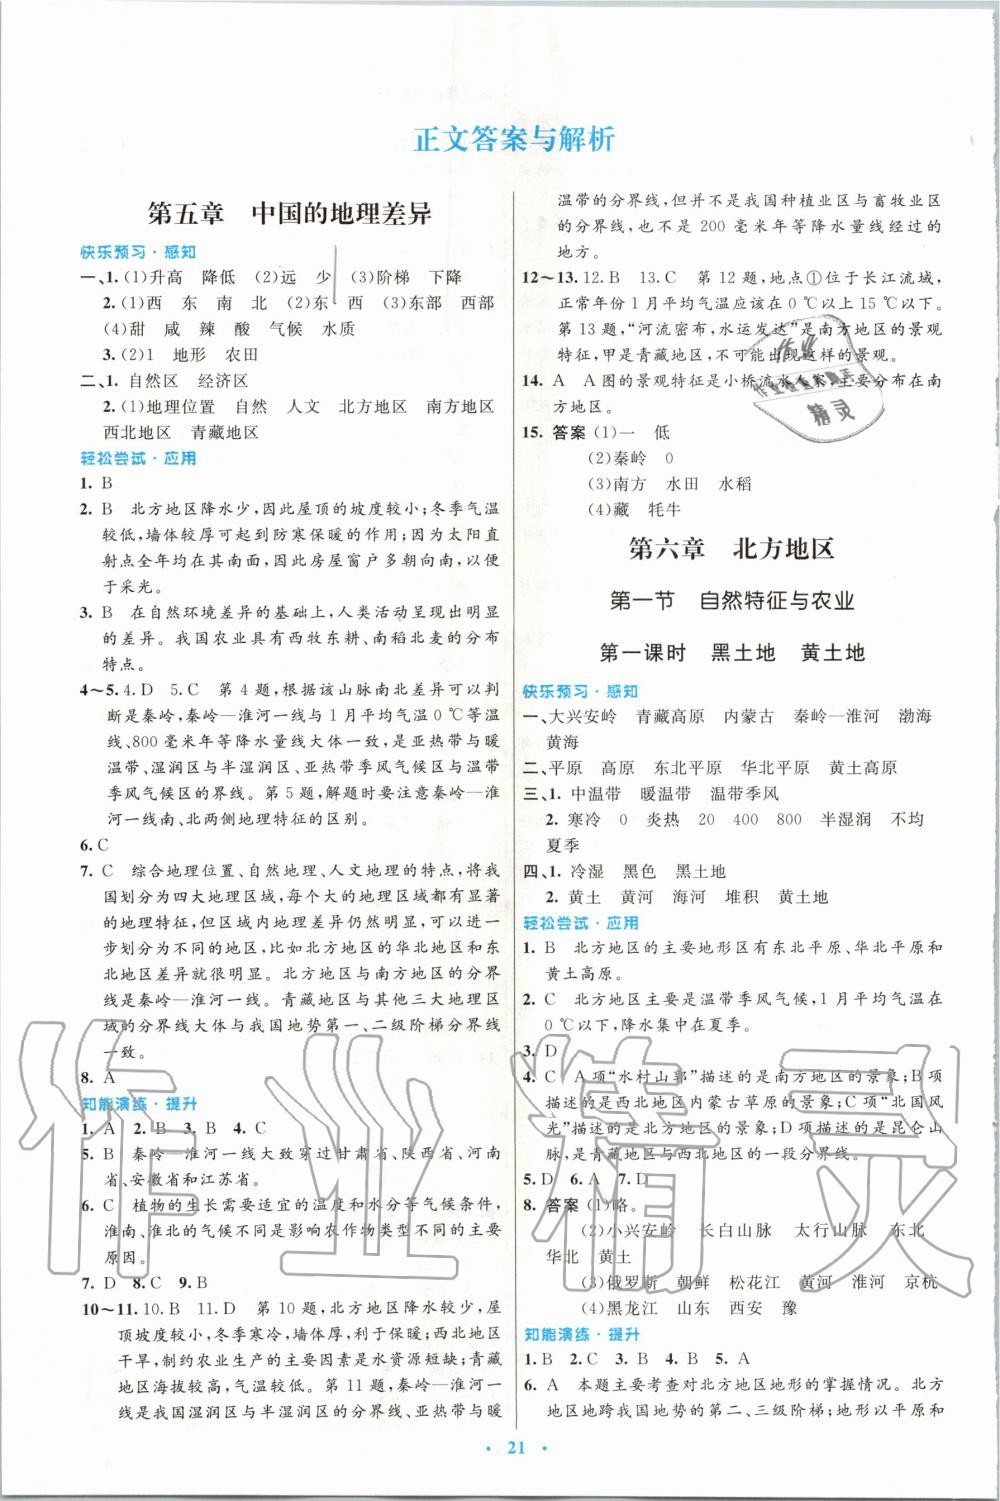 正文答案与解析
第五章 中国的地理差异
快乐预习·感知
一、1.(1)升高 降低 (2)远 少 (3)阶梯 下降
2.(1)西 东 南 北 (2)东 西 (3)东部 西部
(4)甜 咸 辣 酸 气候 水质
3.(2)1 地形 农田
二、1.自然区 经济区
2.(1)地理位置 自然 人文 北方地区 南方地区
西北地区 青藏地区
轻松尝试·应用
1. B
2. B 北方地区降水少,因此屋顶的坡度较小;冬季气温
较低,墙体较厚可起到防寒保暖的作用;因为太阳直
射点全年均在其南面,因此房屋窗户多朝向南,以便
于采光。
3. B 在自然环境差异的基础上,人类活动呈现出明显
的差异。我国农业具有西牧东耕、南稻北麦的分布
特点。
4～5. 4. D 5. C 第4题,根据该山脉南北差异可以判
断是秦岭,秦岭—淮河一线与1月平均气温0 ℃等温
线、800毫米年等降水量线大体一致,是亚热带与暖
温带、湿润区与半湿润区、亚热带季风气候与温带
季风气候区的界线。第5题,解题时要注意秦岭—淮
河一线南、北两侧地理特征的区别。
6. C
7. C 综合地理位置、自然地理、人文地理的特点,将我
国划分为四大地理区域,每个大的地理区域都有显著
的地理特征,但区域内地理差异仍然明显,又可以进一
步划分为不同的地区,比如北方地区的华北地区和东
北地区差异就很明显。北方地区与南方地区的分界
线是秦岭—淮河一线。青藏地区与其他三大地理区
域的分界线大体与我国地势第一、二级阶梯分界线
一致。
8. A
知能演练·提升
1. A 2. B 3. B 4. C
5. B 秦岭—淮河一线大致穿过甘肃省、陕西省、河南
省、安徽省和江苏省。
6. C 植物的生长需要适宜的温度和水分等气候条件,
淮南、淮北的气候不同是影响农作物类型不同的主要
原因。
7. D 8. C 9. B
10～11. 10. B 11. D 第10题,北方地区降水较少,屋
顶坡度较小,冬季寒冷,墙体厚,利于保暖;西北地区
干旱,制约农业生产的主要因素是水资源短缺;青藏
地区海拔较高,气温较低。第11题,秦岭—淮河一
线是我国湿润区与半湿润区的分界线、亚热带与暖
温带的分界线,但并不是我国种植业区与畜牧业区
的分界线,也不是200毫米年等降水量线经过的
地方。
12～13. 12. B 13. C 第12题,地点①位于长江流域,
正常年份1月平均气温应该在0 ℃以上15 ℃以下。
第13题,“河流密布,水运发达”是南方地区的景观
特征,甲是青藏地区,不可能出现这样的景观。
14. A A图的景观特征是小桥流水人家,主要分布在南
方地区。
15. 答案 (1)一 低
(2)秦岭 0
(3)南方 水田 水稻
(4)藏 牦牛
第六章 北方地区
第一节 自然特征与农业
第一课时 黑土地 黄土地
快乐预习·感知
一、大兴安岭 青藏高原 内蒙古 秦岭—淮河 渤海
黄海
二、平原 高原 东北平原 华北平原 黄土高原
三、1.中温带 暖温带 温带季风
2.寒冷 0 炎热 20 400 800 半湿润 不均
夏季
四、1.冷湿 黑色 黑土地
2.黄土 黄河 海河 堆积 黄土地
轻松尝试·应用
1. B 北方地区的主要地形区有东北平原、华北平原和
黄土高原。
2. C 北方地区主要是温带季风气候,1月平均气温在
0 ℃以下,降水集中在夏季。
3. D
4. C A项“水村山郭”描述的是南方地区的景象;B项
描述的是西北地区内蒙古草原的景象;C项“北国风
光”描述的是北方地区的景象;D项描述的是昆仑山
脉,是青藏地区与西北地区的一段分界线。
5. D 6. A 7. D
8. 答案 (1)略。
(2)小兴安岭 长白山脉 太行山脉 东北
华北 黄土
(3)俄罗斯 朝鲜 松花江 黄河 淮河 京杭
(4)黑龙江 山东 西安 豫
知能演练·提升
1. B 2. C 3. B 4. B 5. A
6. A 本题主要考查对北方地区地形的掌握情况。北方
地区地跨我国地势的第二、三级阶梯;地形以平原和
· 21 ·
作业精灵
作业
精灵